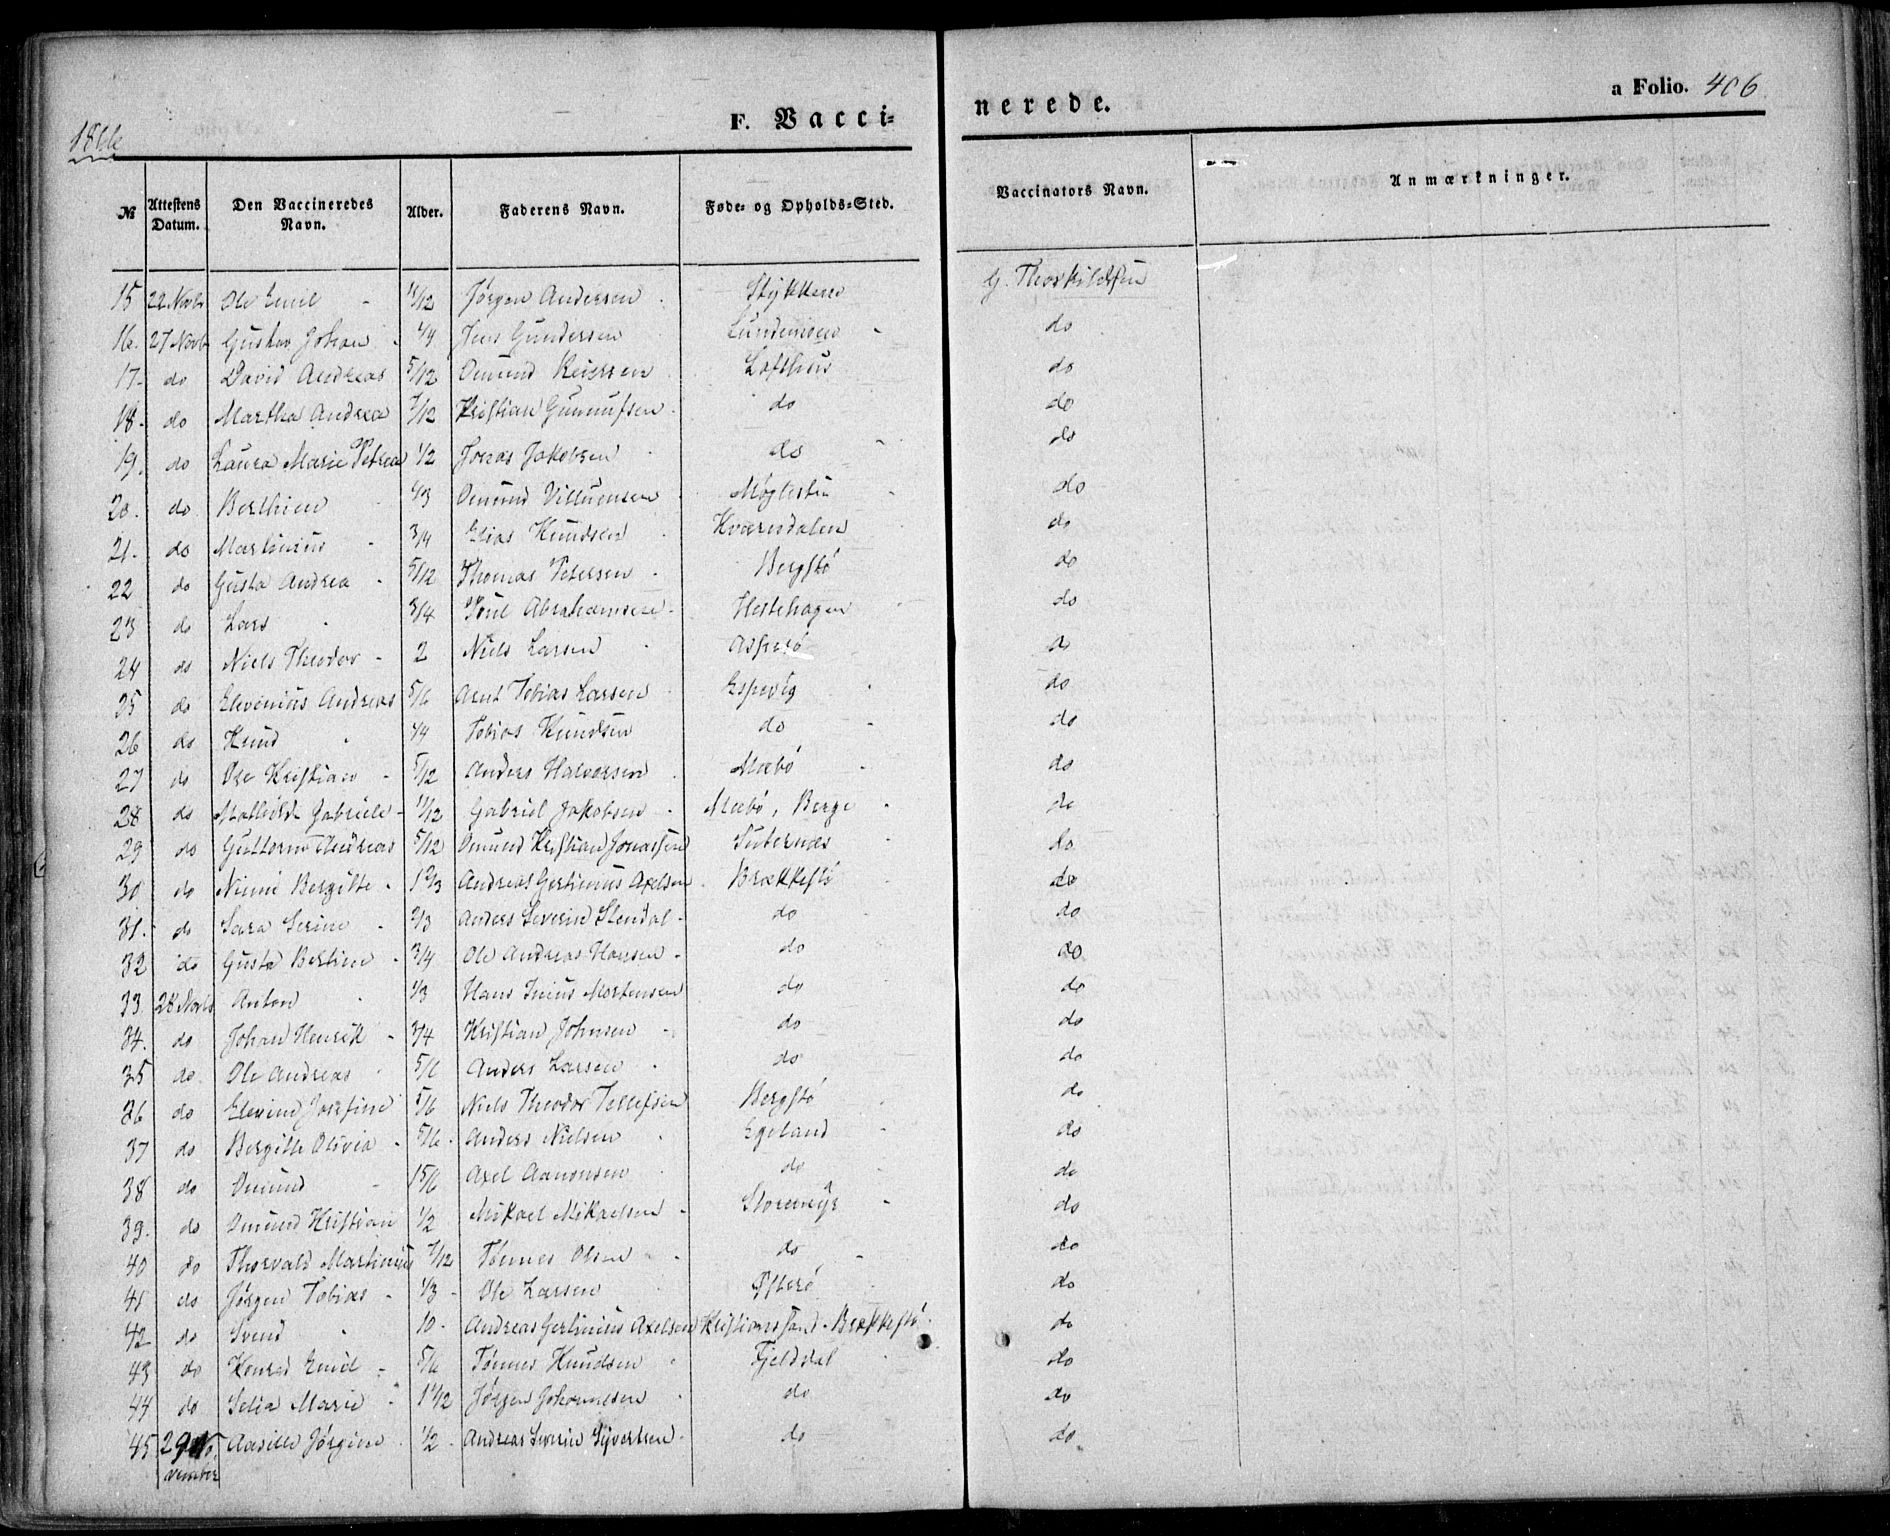 F. Vacci=
nerede.
a Folio. 406
1866
№ Attestens Datum. Den Vaccineredes Navn. Alder. Faderens Navn. Føde= og Opholds=Sted. Vaccinators Navn. Anmærkninger.
15 22 Novb Ole Emil 11/12 Jørgen Andersen Stykkene G. Thorkildsen
16. 27 Novb Gustav Johan 1/4 Jens Gundersen do
17. do David Andreas 5/12 Omund Reiersen Lofthus do
18. do Martha Andrea 7/12 Kristian Gunnufsen do do
19. do Laura Marie Petrea 1/2 Jonas Jakobsen do do
20. do Berthine 1/3 Omund Møglestu do
21. do Martinius 3/4 Elias Knudsen Kværndalen do
22 do Gusta Andrea 5/12 Thomas Petersen Bergstø do
23 do Lars 3/4 Poul Abrahamsen Hestehagen do
24 do Niels Theodor 2 Niels Larsen do
25 do Elevinius Andreas 5/6 Arnt Tobias Larsen Espevig do
26 do Knud 1/4 Tobias Knudsen do do
27 do Ole Kristian 5/12 Anders Halvorsen Mæbø do
28 do Mathilde Gabriele 11/12 Gabriel Jakobsen Mæbø, Berge do
29 do Guttorm Andreas 5/12 Omund Kristian Jonassen do
30 do Bergitte 1 2/3 Andreas Gertinius Axelsen Brækkestø do
31. do Sara Serine 2/3 Anders Severin Stendal do do
32 do Gusta Bertine 3/4 Ole Andreas Hansen do do
33 28 Novb Anton 1/3 Hans Mortensen do do
34. do Johan Henrik 3/4 Kristian Johnsen do do
35 do Ole Andreas 5/6 Anders Larsen do do
36 do Elevine Josefine 5/6 Niels Theodor Tellefsen Bergstø do
37 do Bergitte Olivia 5/6 Anders Nielsen Egeland do
38 do Omund 1 5/6 Axel Aanonsen do do
39. do Omund Kristian 1/2 Mikael Mikaelsen Storemyr do
40 do Thorvald Martinius 7/12 Tønnes Olsen do do
41 do Jørgen Tobias 1/3 Ole Larsen do
42 do Svend 10 Andreas Gertinius Axelsen Kristianssand. Brækkestø do
43 do Konrad Emil 5/6 Tønnes Knudsen Fjelddal do
44 do Selia Marie Jørgen do do
45 29 November Jørgine 1/2 Andreas Severin Syvertsen do do